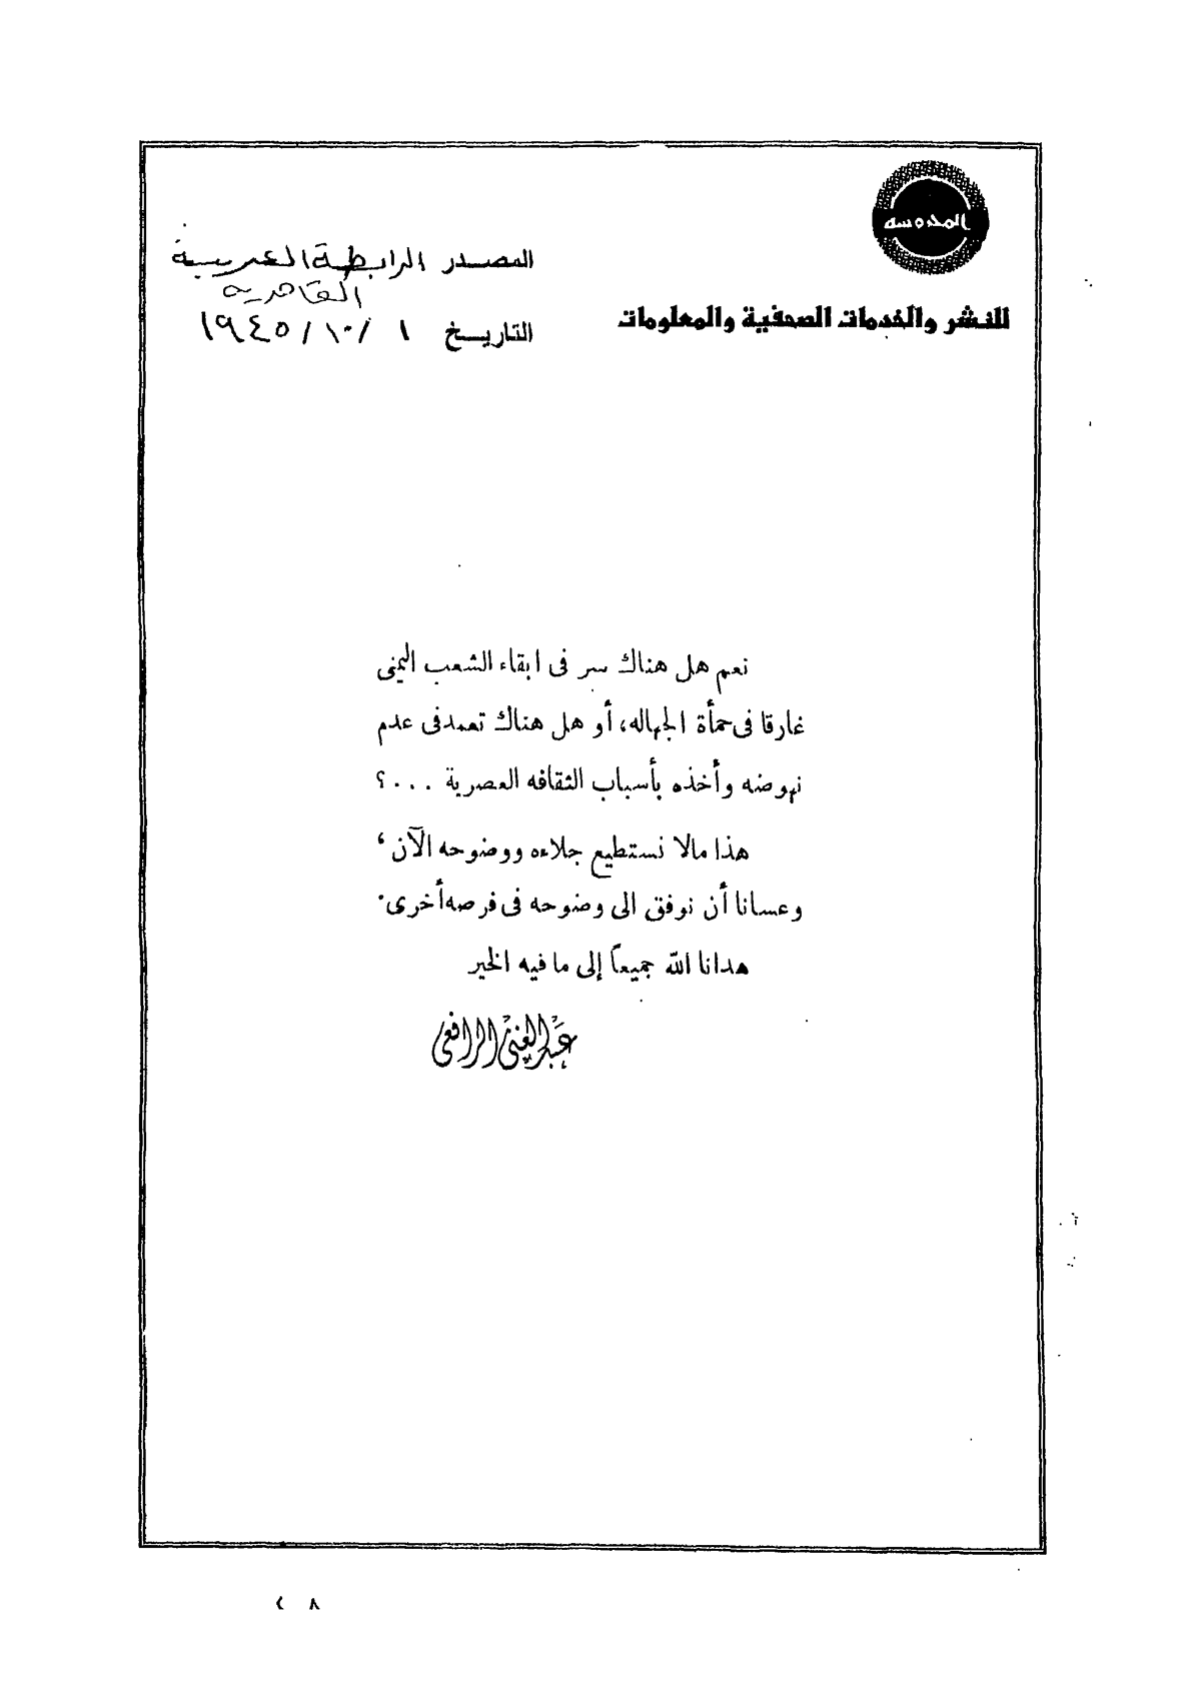 المحروسه
للنشر والخدمات الصحفية والمعلومات
المصدر الرابطة العربية
القاهرية
التاريخ ١ / ١٠ / ١٩٤٥
نعم هل هناك سر فى ابقاء الشعب اليمنى
غارقا فى حمأة الجهاله، أو هل هناك تعمد فى عدم
نهوضه وأخذه بأسباب الثقافه العصرية ...؟
هذا مالا نستطيع جلاءه ووضوحه الآن،
وعسانا أن نوفق الى وضوحه فى فرصه أخرى.
هدانا الله جميعاً إلى ما فيه الخير
عبد الغنى الرافعى